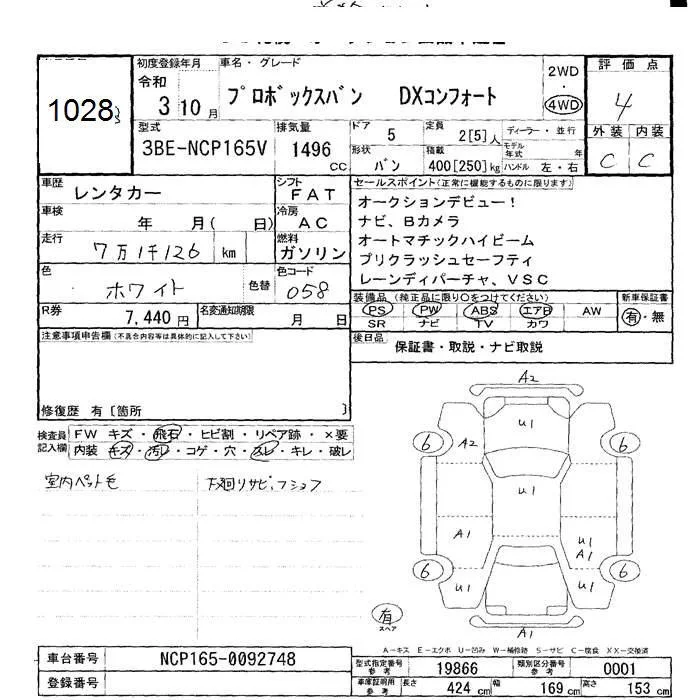 1028
初度登録年月
令和
3 10月
車名・グレード
プロボックスバン DXコンフォート
2WD
・
4WD
評価点
4
外装 内装
C C
型式
3BE-NCP165V
排気量
1496
CC
ドア
5
定員
2[5]人
ディーラー・並行
形状
バン
積載
400[250]kg
モデル年式 年
ハンドル 左・右
車歴
レンタカー
シフト
FAT
車検
年 月( 日)
冷房
AC
走行
7万1千126 km
燃料
ガソリン
色
ホワイト
色替
色コード
058
R券
7,440円
名変通知期限
月 日
セールスポイント(正常に機能するものに限ります)
オークションデビュー!
ナビ、Bカメラ
オートマチックハイビーム
プリクラッシュセーフティ
レーンディパーチャ、VSC
装備品 (純正品に限り○をつけてください)
PS PW ABS エアB AW
SR ナビ TV カワ
新車保証書
有・無
後日品
保証書・取説・ナビ取説
注意事項申告欄(不具合内容等は具体的に記入して下さい)
修復歴 有〔箇所 〕
検査員記入欄
FW キズ・飛石・ヒビ割・リペア跡・×要
内装 キズ・汚レ・コゲ・穴・スレ・キレ・破レ
室内ペット毛
下廻リサビ,フショク
A2
U1
6
A2
6
U1
A1
U1
A1
6
6
U1
U1
A1
有
スペア
A-キス E-エクボ U-凹み W-補修跡 S-サビ C-腐食 XX-交換済
車台番号
NCP165-0092748
登録番号
型式指定番号
参考
19866
類別区分番号
参考
0001
車庫証明用
参考
長さ 424 cm
幅 169 cm
高さ 153 cm